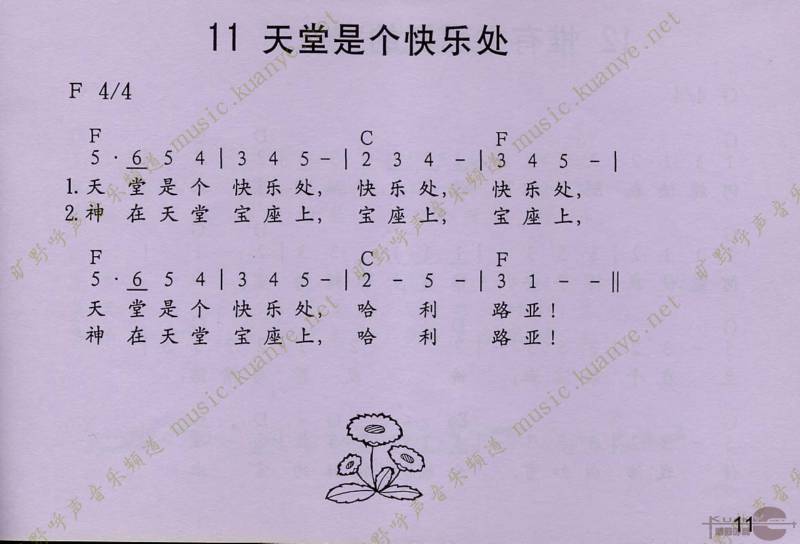 11 天堂是个快乐处
F 4/4
F C F
5 · 6 5 4 | 3 4 5 – | 2 3 4 – | 3 4 5 – |
1. 天 堂是个 快乐处, 快乐处, 快乐处,
2. 神 在天堂 宝座上, 宝座上, 宝座上,
F C F
5 · 6 5 4 | 3 4 5 – | 2 – 5 – | 3 1 – – ‖
天 堂是个 快乐处, 哈 利 路亚!
神 在天堂 宝座上, 哈 利 路亚!
旷野呼声音乐频道 music.kuanye.net
11